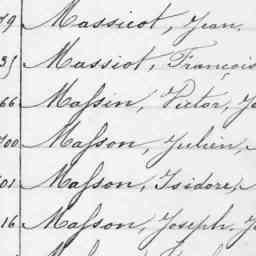 79 Massicot, Jean.
35 Massiot, François
66 Massin, Victor, Jo
700 Masson, Julien,
501 Masson, Isidore,
16 Masson, Joseph. J